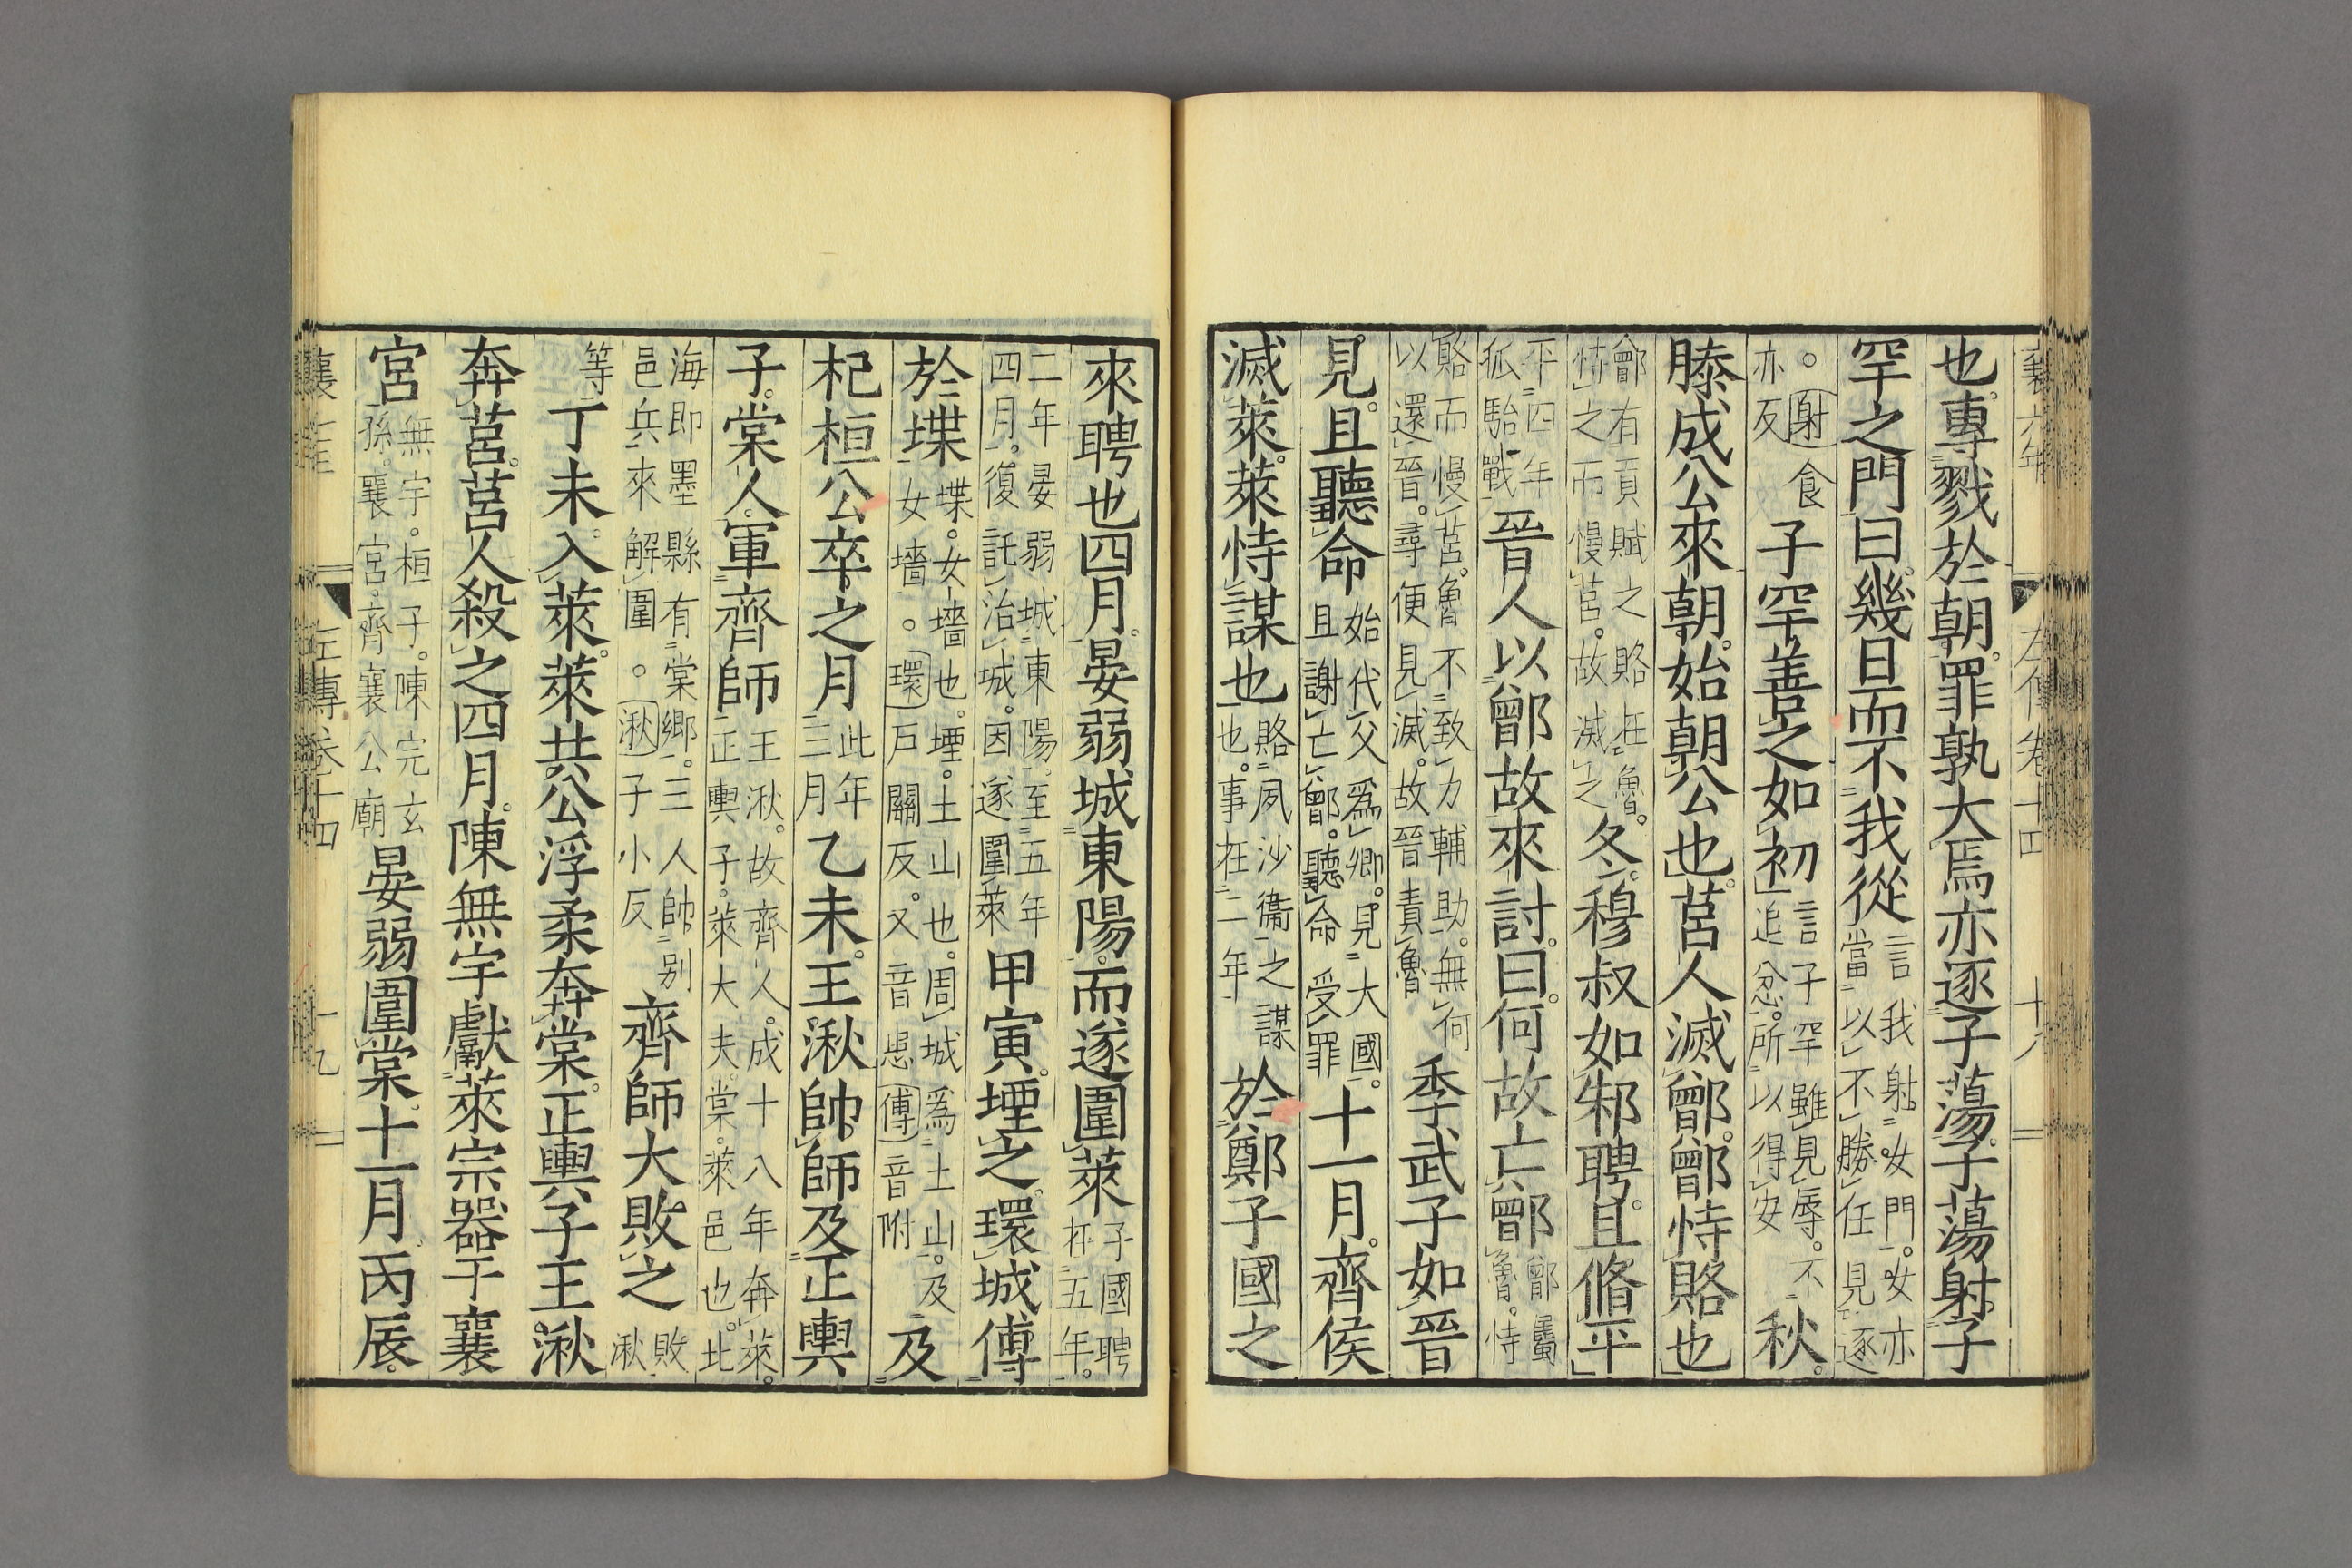 襄六年 左傳卷十四 十八
也。專戮於朝。罪孰大焉。亦逐子蕩。子蕩射子
罕之門曰。幾日而不我從言我射女門。女亦當以不勝任見逐
。射食亦反子罕善之如初言子罕雖見辱。不追忿。所以得安秋。
滕成公來朝。始朝公也。莒人滅鄫。鄫恃賂也
鄫有貢賦之賂在魯。恃之而慢莒。故滅之冬。穆叔如邾聘。且脩平
平四年狐駘戰晉人以鄫故來討。曰。何故亡鄫鄫屬魯。恃
賂而慢莒。魯不致力輔助。無何以還晉。尋便見滅。故晉責魯季武子如晉
見。且聽命始代父爲卿。見大國。且謝亡鄫。聽命受罪十一月。齊侯
滅萊。萊恃謀也賂夙沙衞之謀也。事在二年於鄭子國之
來聘也。四月。晏弱城東陽。而遂圍萊子國聘在五年。
二年晏弱城東陽。至五年四月。復託治城。因遂圍萊甲寅。堙之。環城傅
於堞堞。女墻也。堙。土山也。周城爲土山。及女墻。環戶關反。又音患傅音附及
杞桓公卒之月此年三月乙未。王湫帥師及正輿
子。棠人。軍齊師王湫。故齊人。成十八年奔萊。正輿子。萊大夫。棠。萊邑也。北
海即墨縣有棠鄉。三人帥別邑兵來解圍。湫子小反齊師大敗之敗湫
等丁未。入萊。萊共公浮柔奔棠。正輿子王湫
奔莒。莒人殺之。四月。陳無宇獻萊宗器于襄
宮無宇。桓子。陳完玄孫。襄宮。齊襄公廟晏弱圍棠。十一月丙辰。
襄 左傳卷十四 十九